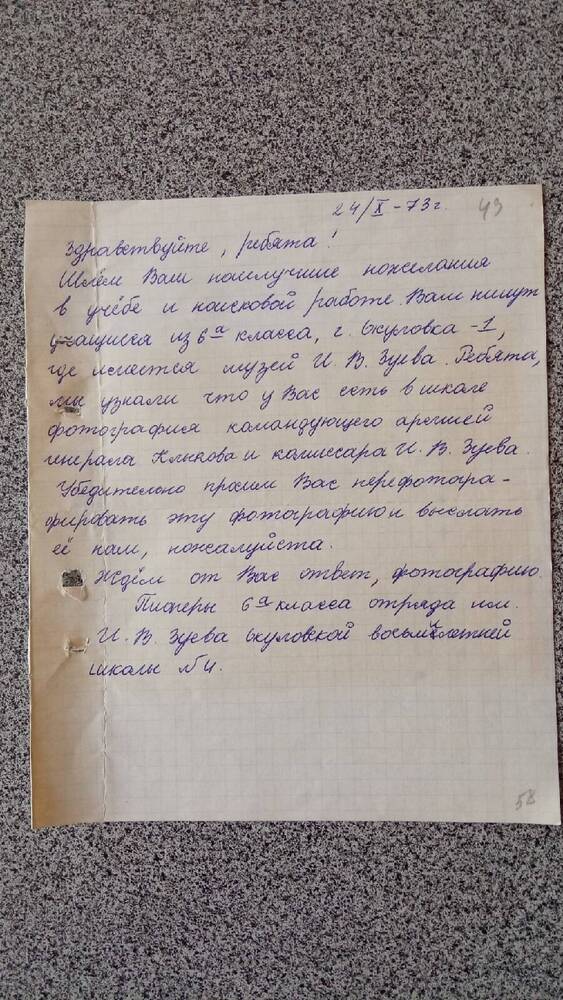 24/X-73г.
49
Здравствуйте, ребята!
Шлём Вам наилучшие пожелания
в учёбе и поисковой работе. Вам пишут
учащиеся из 6а класса, г. Окуловка-1,
где имеется музей И. В. Зуева. Ребята,
мы узнали что у Вас есть в школе
фотография командующего армией
генерала Клыкова и комиссара И. В. Зуева.
Убедительно просим Вас перефотогра-
фировать эту фотографию и выслать
её нам, пожалуйста.
Ждём от Вас ответ, фотографию.
Пионеры 6а класса отряда им.
И. В. Зуева Окуловской восьмилетней
школы №4.
58